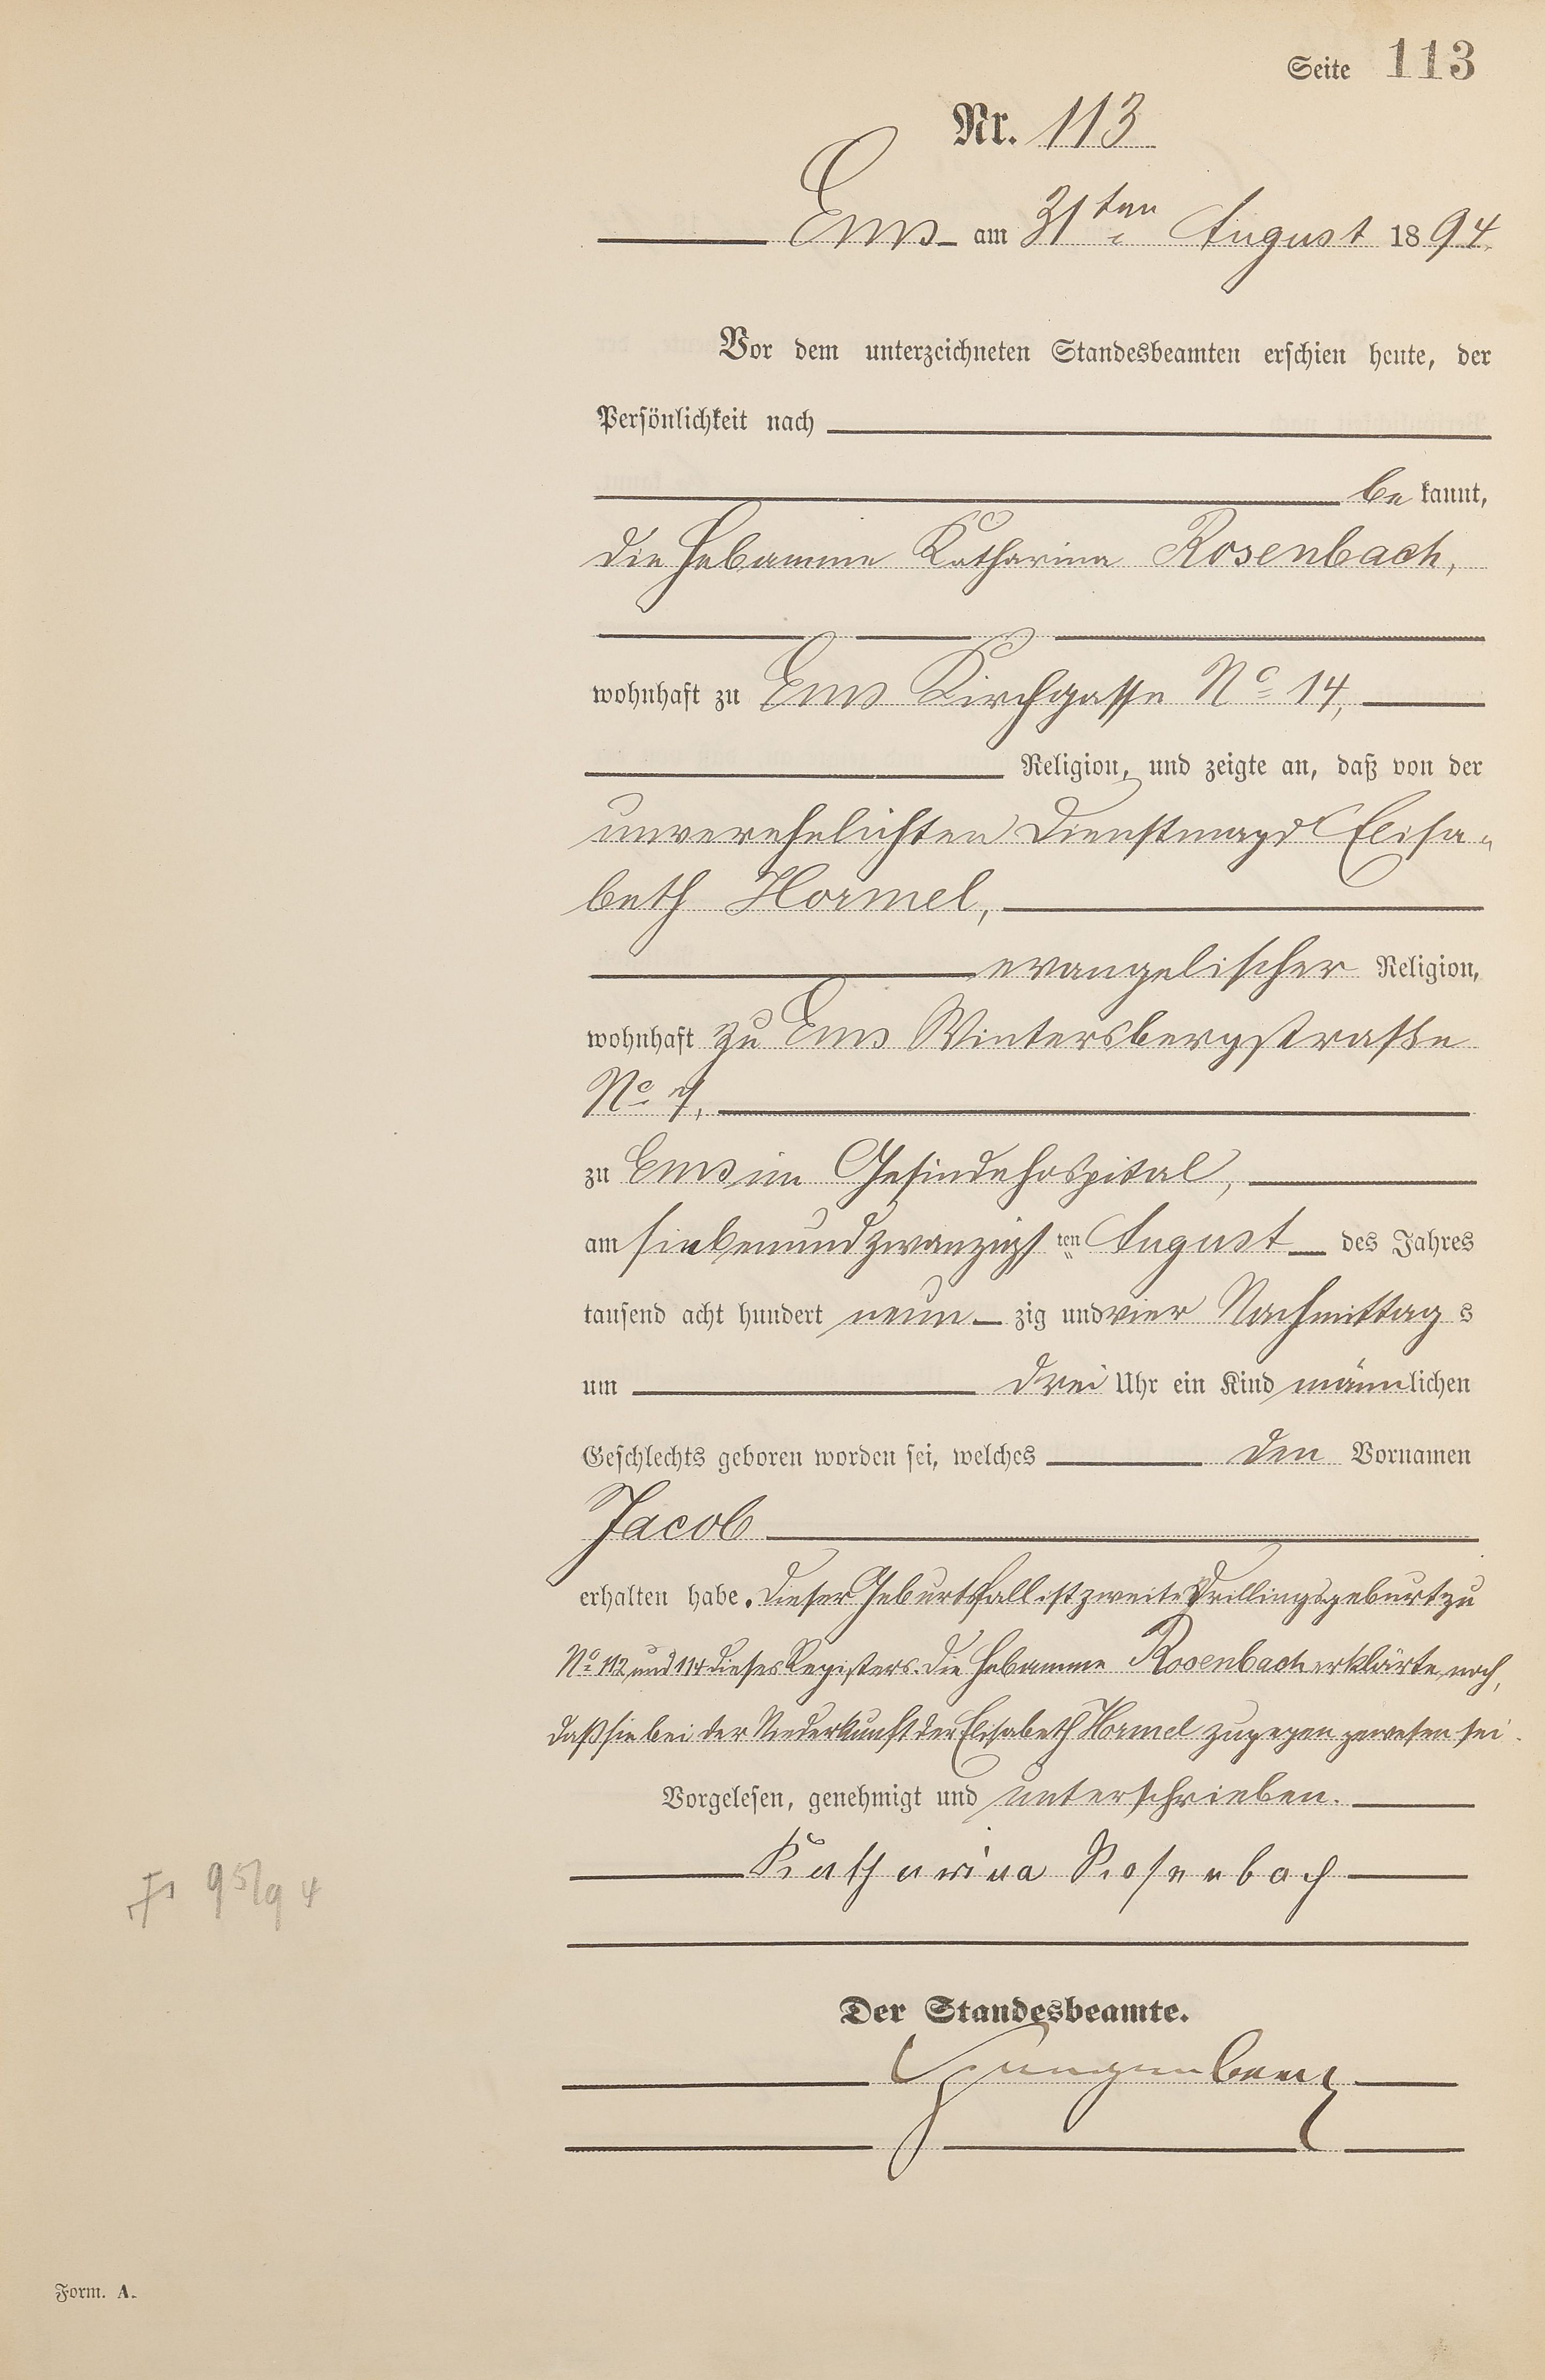 Seite 113
Nr. 113
Ems am 31ten August 1894
Vor dem unterzeichneten Standesbeamten erschien heute, der
Persönlichkeit nach
be kannt,
die Hebamme Katharina Rosenbach,
wohnhaft zu Ems Kirchgasse No 14,
Religion, und zeigte an, daß von der
unverehelichten Dienstmagd Elisa-
beth Hormel,
evangelischer Religion,
wohnhaft zu Ems Wintersbergstraße
No
zu Ems im Gesindehospital,
am siebenundzwanzigsten August des Jahres
tausend acht hundert neun zig und vier Nachmittag s
um drei Uhr ein Kind männlichen
Geschlechts geboren worden sei, welches den Vornamen
Jacob
erhalten habe. Dieser Geburtsfall ist zweite Drillingsgeburt zu
No 112 und 114 dieses Registers. Die Hebamme Rosenbach erklärte noch,
daß sie bei der Niederkunft der Elisabeth Hormel zugegen gewesen sei.
Vorgelesen, genehmigt und unterschrieben.
Katharina Rosenbach
95/94
Der Standesbeamte.
Form. A.